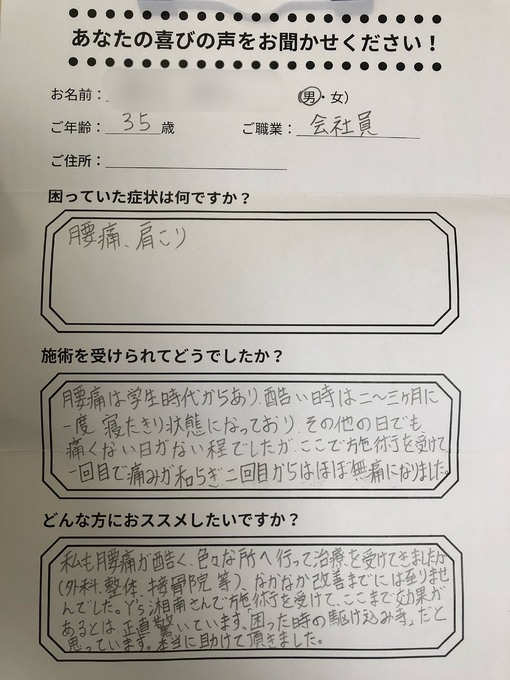 あなたの喜びの声をお聞かせください！
お名前： (男・女)
ご年齢： 35 歳 ご職業： 会社員
ご住所：
困っていた症状は何ですか？
腰痛、肩こり
施術を受けられてどうでしたか？
腰痛は学生時代からあり、酷い時は二〜三ヶ月に
一度 寝たきり状態になっており、その他の日でも
痛くない日がない程でしたが、ここで施術を受けて
一回目で痛みが和らぎ二回目からはほぼ無痛になりました。
どんな方におススメしたいですか？
私も腰痛が酷く、色々な所へ行って治療を受けてきましたが
(外科、整体、接骨院 等)、なかなか改善までには至りませ
んでした。Y's湘南さんで施術を受けて、ここまで効果が
あるとは、正直驚いています。困った時の駆け込み寺、だと
思っています。本当に助けて頂きました。